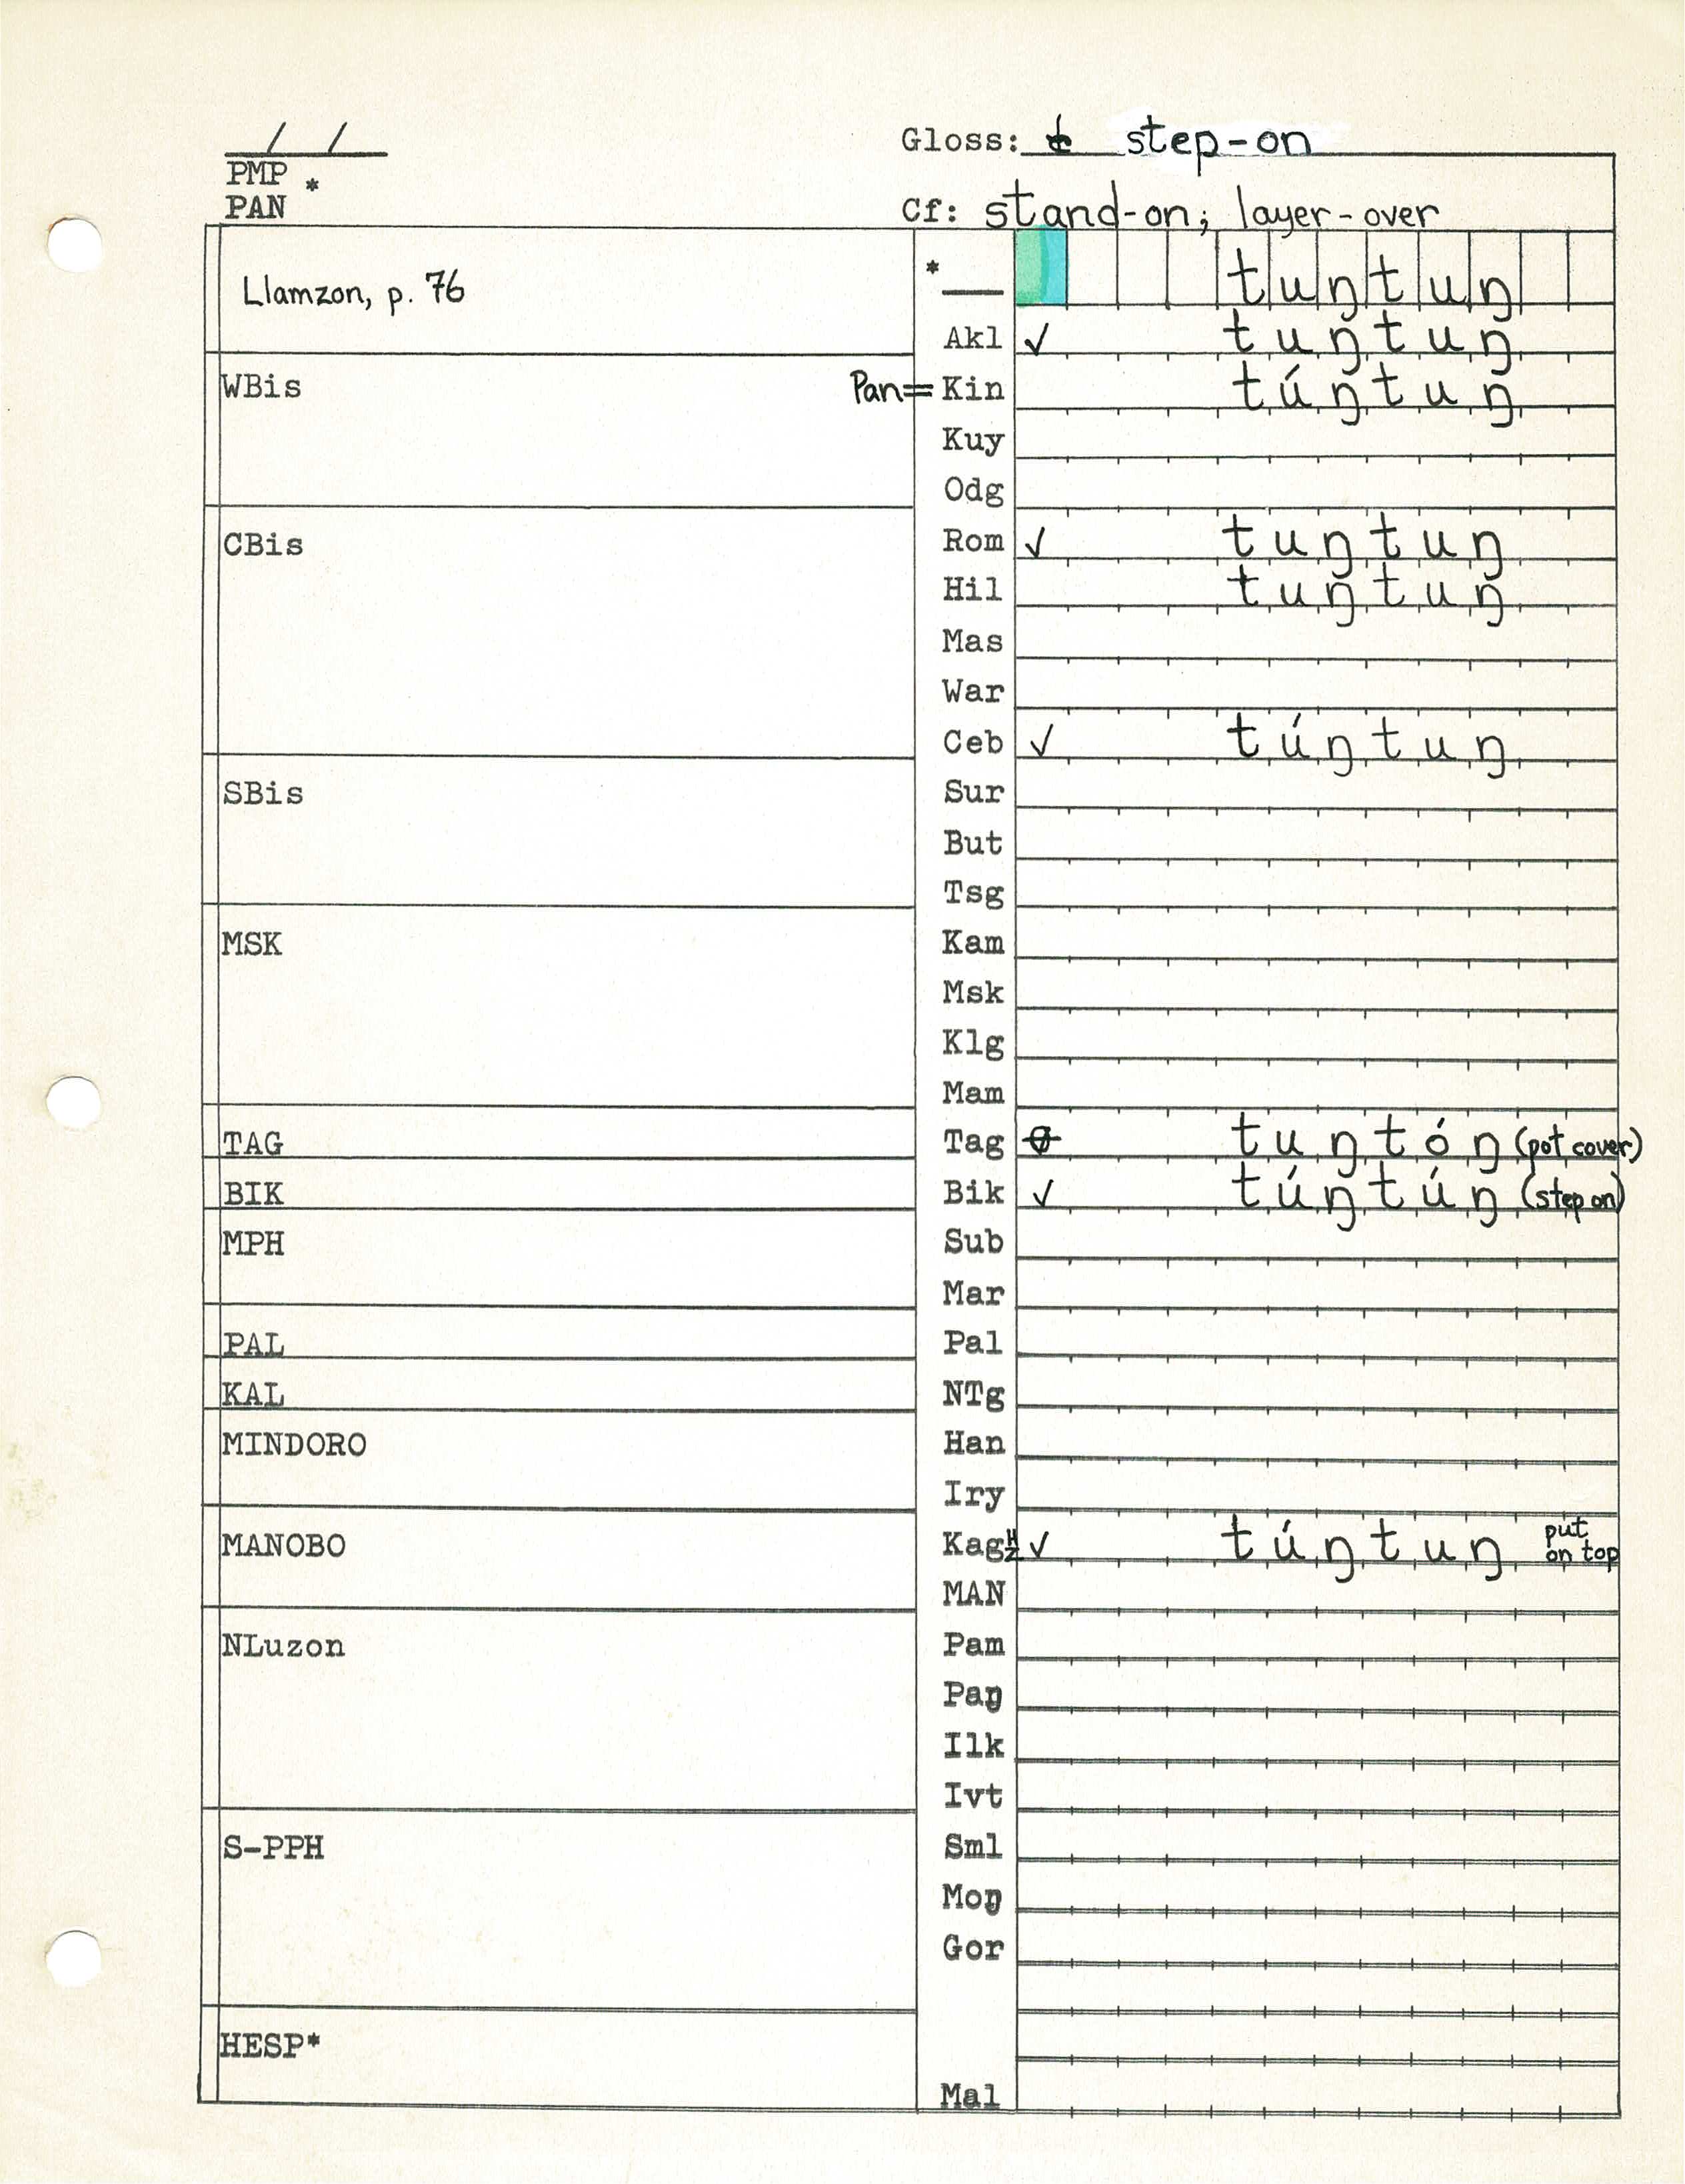 / /
PMP *
PAN
Gloss: step-on
Cf: stand-on; layer-over
Llamzon, p. 76
* tuŋtuŋ
Akl ✓ tuŋtuŋ
WBis
Pan= Kin túŋtuŋ
Kuy
Odg
CBis
Rom ✓ tuŋtuŋ
Hil tuŋtuŋ
Mas
War
Ceb ✓ túŋtuŋ
SBis
Sur
But
Tsg
MSK
Kam
Msk
Klg
Mam
TAG
Tag tuŋtóŋ (pot cover)
BIK
Bik ✓ túŋtúŋ (step on)
MPH
Sub
Mar
PAL
Pal
KAL
NTg
MINDORO
Han
Iry
MANOBO
Kag ✓ túŋtuŋ put on top
MAN
NLuzon
Pam
Paŋ
Ilk
Ivt
S-PPH
Sml
Moŋ
Gor
HESP*
Mal